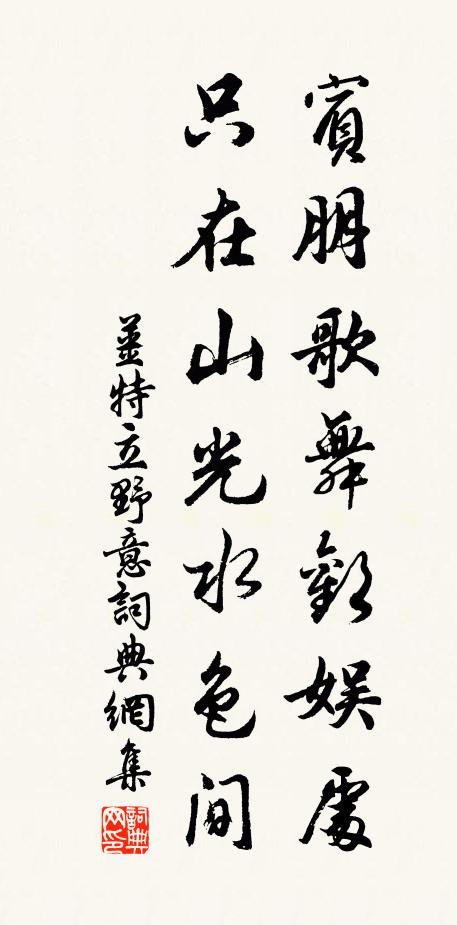 賓朋歌舞歡娛處
只在山光水色间
姜特立野意詞典網集
詞典网印